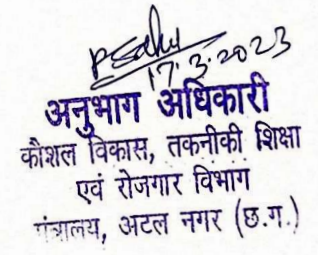 PSahu
17.3.2023
अनुभाग अधिकारी
कौशल विकास, तकनीकी शिक्षा
एवं रोजगार विभाग
मंत्रालय, अटल नगर (छ.ग.)